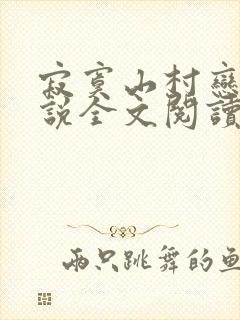 寂寞山村戀
說全文閱讀
兩只跳舞的魚